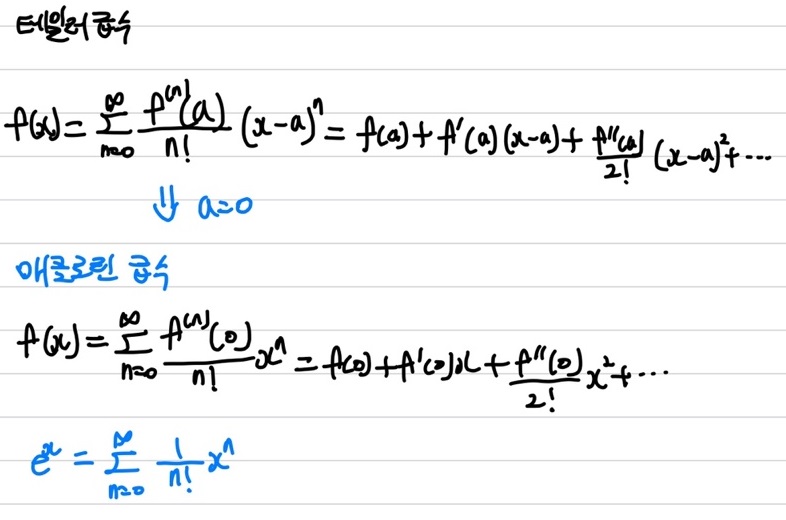 테일러 급수
f(x) = ∑_{n=0}^{∞} f^{(n)}(a)/n! (x-a)^n = f(a) + f'(a)(x-a) + f''(a)/2! (x-a)^2 + ⋯
⇓ a=0
매클로린 급수
f(x) = ∑_{n=0}^{∞} f^{(n)}(0)/n! x^n = f(0) + f'(0)x + f''(0)/2! x^2 + ⋯
e^x = ∑_{n=0}^{∞} 1/n! x^n